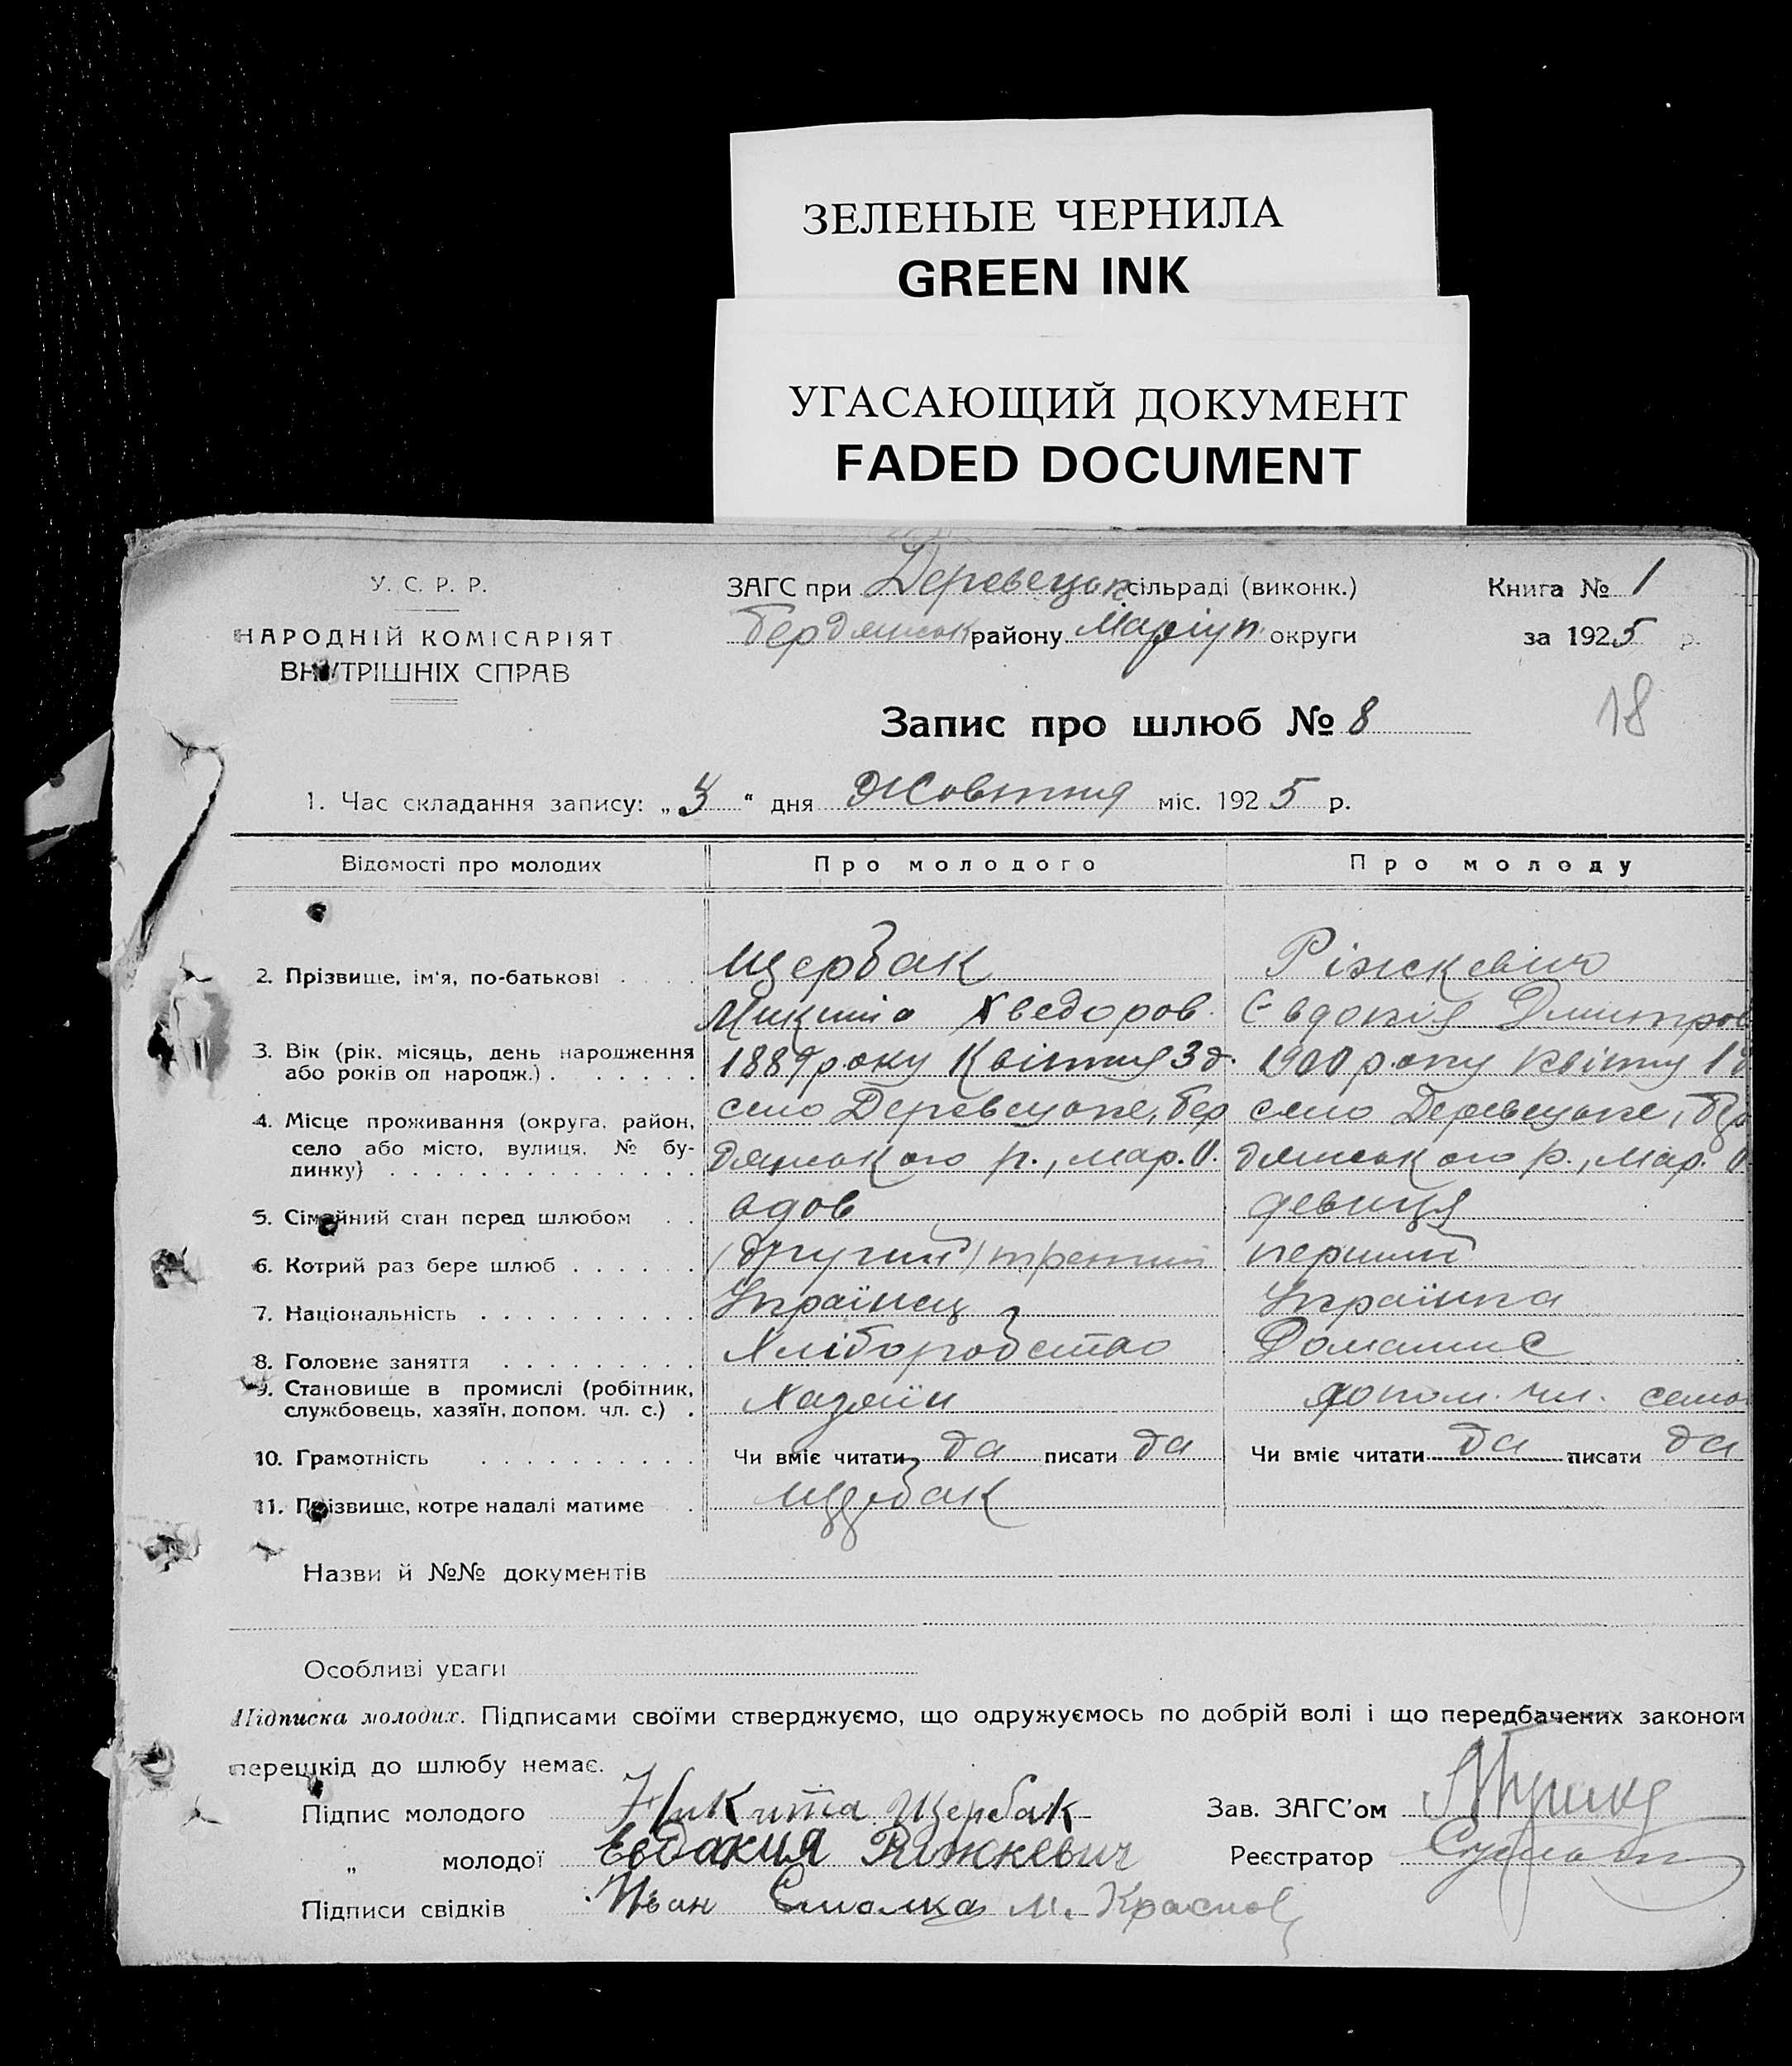 ЗЕЛЕНЫЕ ЧЕРНИЛА
GREEN INK
УГАСАЮЩИЙ ДОКУМЕНТ
FADED DOCUMENT
У. С. Р. Р.
НАРОДНІЙ КОМІСАРІЯТ
ВНУТРІШНІХ СПРАВ
ЗАГС при Деревецьк сільраді (виконк.)
Бердянськ району Маріуп. округи
Книга № 1
за 1925 р.
18
Запис про шлюб № 8
1. Час складання запису: „3“ дня Жовтня міс. 1925 р.
Відомості про молодих
Про молодого
Про молоду
2. Прізвище, ім'я, по-батькові
Щербак
Микита Хведоров.
Ріжкевич
Євдокія Дмитров
3. Вік (рік, місяць, день народження
або років од народж.)
1889 року Квітня 3 д.
1900 року Квітня 1 д
4. Місце проживання (округа, район,
село або місто, вулиця, № бу-
динку)
село Деревецьке, Бер
дянського р., Мар. О.
село Деревецьке, Бер
дянського р., Мар. О.
5. Сімейний стан перед шлюбом
вдов
девиця
6. Котрий раз бере шлюб
(другий) третий
перший
7. Національність
Українец
Українка
8. Головне заняття
Хліборобство
Домашнє
9. Становище в промислі (робітник,
службовець, хазяїн, допом. чл. с.)
Хазяїн
допом. чл. семьи
10. Грамотність
Чи вміє читати да писати да
Чи вміє читати да писати да
11. Прізвище, котре надалі матиме
Щербак
Назви й №№ документів
Особливі уваги
Підписка молодих. Підписами своїми стверджуємо, що одружуємось по добрій волі і що передбачених законом
перешкід до шлюбу немає.
Підпис молодого Никита Щербак
Зав. ЗАГС'ом
„ молодої Евдакия Рижкевич
Реєстратор
Підписи свідків Иван М. Краснов